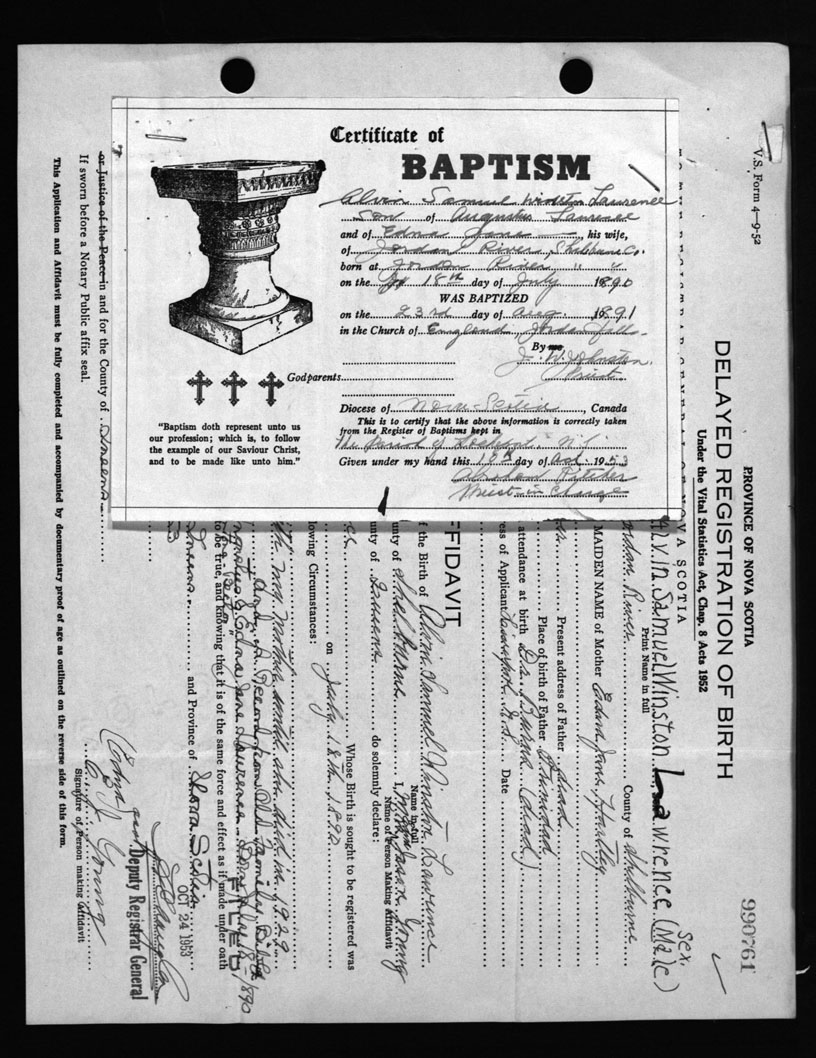 Certificate of
BAPTISM
Alvin Samuel Winston Lawrence
Son of Augustus Lawrence
and of Edna Jane, his wife,
of Jordan River, Shelburne Co.
born at Jordan River " "
on the 18th day of July 1890
WAS BAPTIZED
on the 23rd day of Aug. 1891
in the Church of England, Jordan Falls
By me
J. W. Johnston
Priest
Godparents
Diocese of Nova-Scotia, Canada
This is to certify that the above information is correctly taken
from the Register of Baptisms kept in
The Parish of Lockeport N.S.
Given under my hand this 10th day of Oct 1953
Priest-in-Charge
"Baptism doth represent unto us
our profession; which is, to follow
the example of our Saviour Christ,
and to be made like unto him."
V.S. Form 4-9-52
PROVINCE OF NOVA SCOTIA
DELAYED REGISTRATION OF BIRTH
Under the Vital Statistics Act, Chap. 8 Acts 1952
990761
NOVA SCOTIA
Alvin Samuel Winston Lawrence (Male)
Sex
Print Name in full
River County of Shelburne
MAIDEN NAME of Mother Edna Jane
Present address of Father dead
Place of birth of Father
attendance at birth Dr. (dead)
ess of Applicant Liverpool N.S. Date
FFIDAVIT
f the Birth of Alvin Samuel Winston Lawrence
Name in full
unty of Shelburne I, Young
Name of Person Making Affidavit
unty of Queens do solemnly declare:
Whose Birth is sought to be registered was
on July 18th 1890
lowing Circumstances:
my mother until she died in 1929
record from Old Family Bible
Edna Jane Lawrence July 18 1890
to be true, and knowing that it is of the same force and effect as if made under oath
FILED
Queens and Province of Nova Scotia
OCT 24 1953
Deputy Registrar General
or Justice of the Peace in and for the County of Queens
Young
Signature of Person making Affidavit
If sworn before a Notary Public affix seal.
This Application and Affidavit must be fully completed and accompanied by documentary proof of age as outlined on the reverse side of this form.